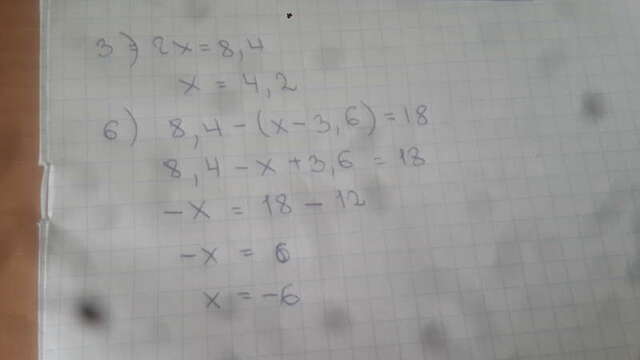 3) 2x = 8,4
x = 4,2
6) 8,4 - (x - 3,6) = 18
8,4 - x + 3,6 = 18
-x = 18 - 12
-x = 6
x = -6